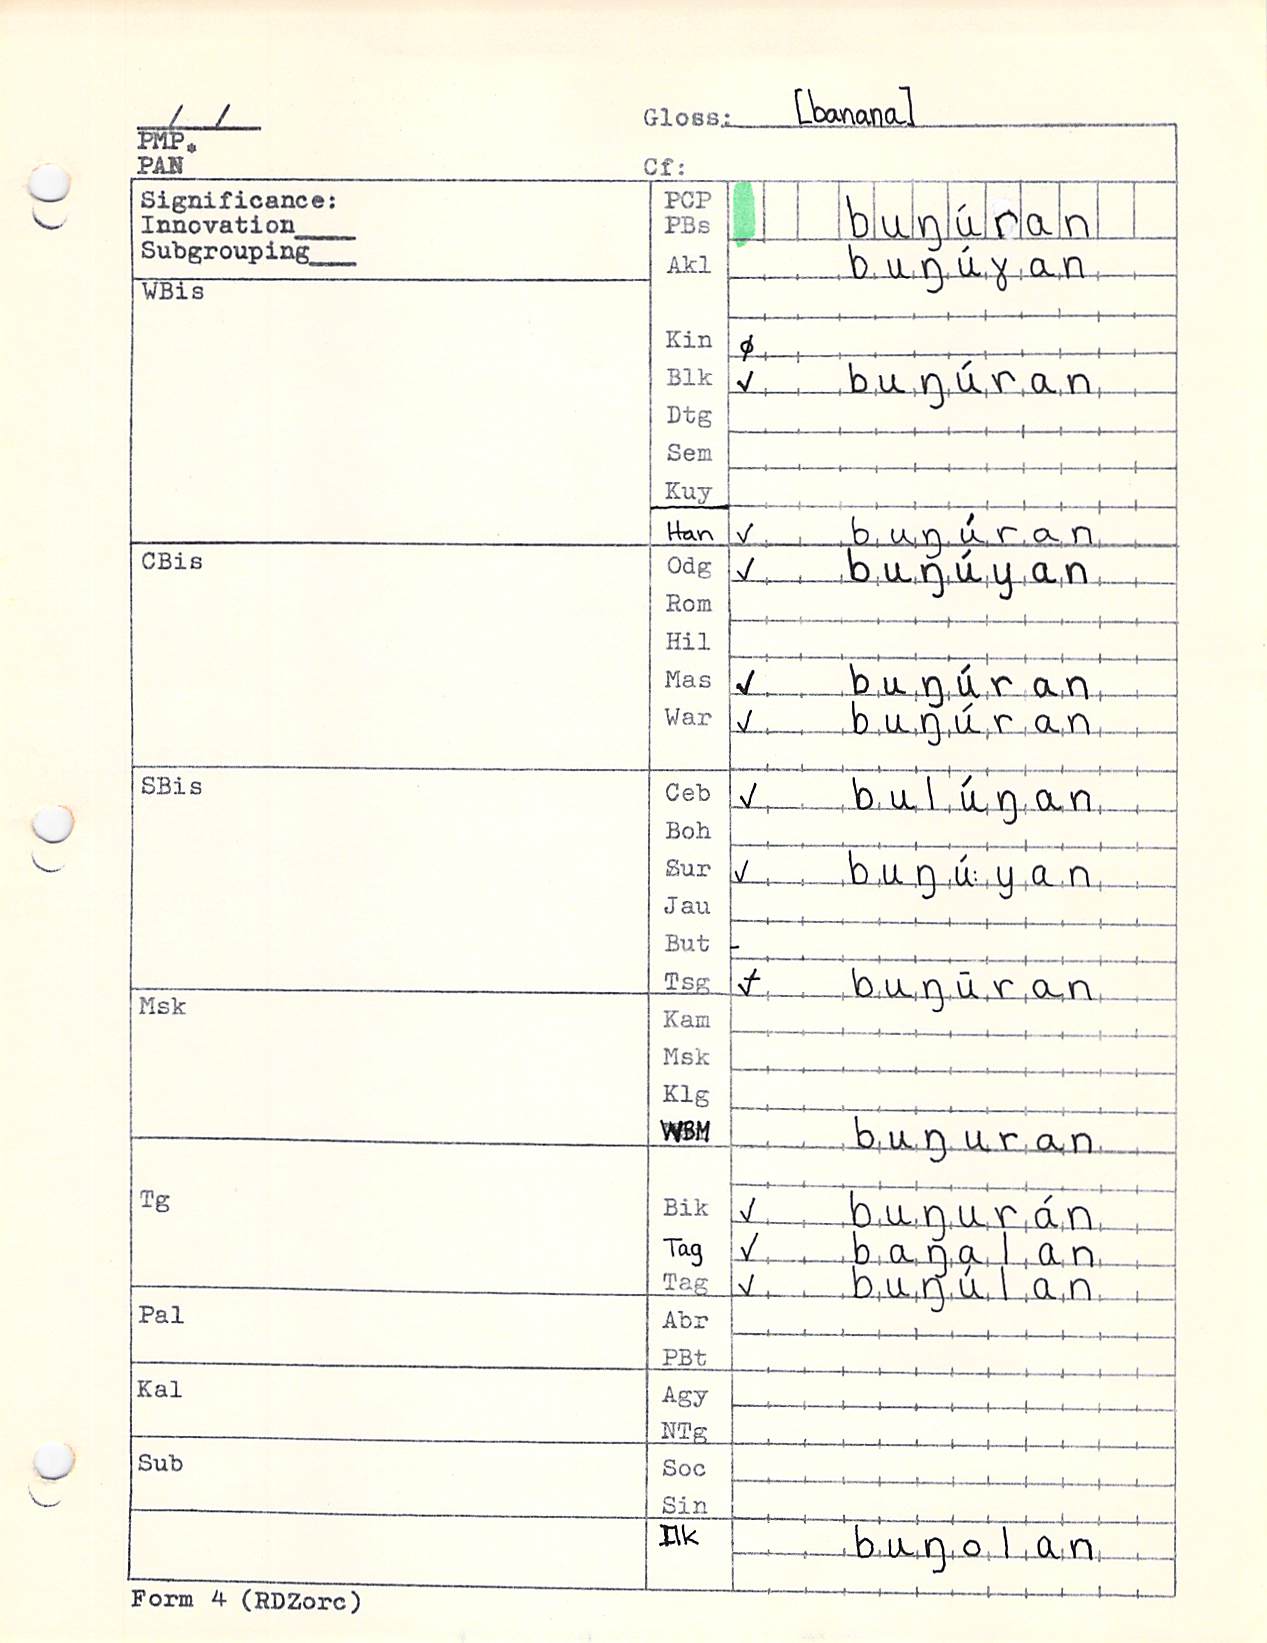 / /
Gloss: [banana]
PMP.
PAN Cf:
Significance: PCP
Innovation PBs buŋúran
Subgrouping
Akl buŋúɣan
WBis
Kin ø
Blk ✓ buŋúran
Dtg
Sem
Kuy
Han ✓ buŋúran
CBis Odg ✓ buŋúyan
Rom
Hil
Mas ✓ buŋúran
War ✓ buŋúran
SBis Ceb ✓ bulúŋan
Boh
Sur ✓ buŋú:yan
Jau
But -
Tsg buŋūran
Msk Kam
Msk
Klg
WBM buŋuran
Tg Bik ✓ buŋurán
Tag ✓ baŋalan
Tag ✓ buŋúlan
Pal Abr
PBt
Kal Agy
NTg
Sub Soc
Sin
Ilk buŋolan
Form 4 (RDZorc)